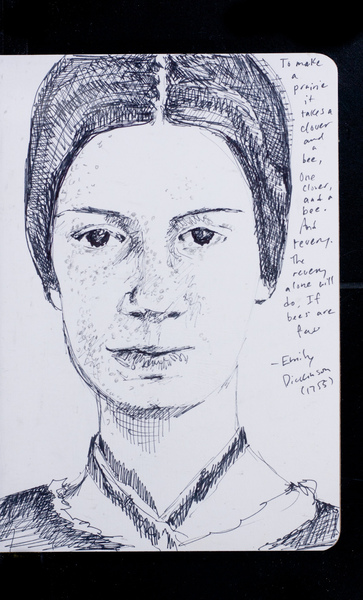 To make
a
prairie
it
takes a
clover
and
a
bee,
One
clover,
and a
bee.
And
revery.
The
revery
alone will
do, If
bees are
few
—Emily
Dickinson
(1755)